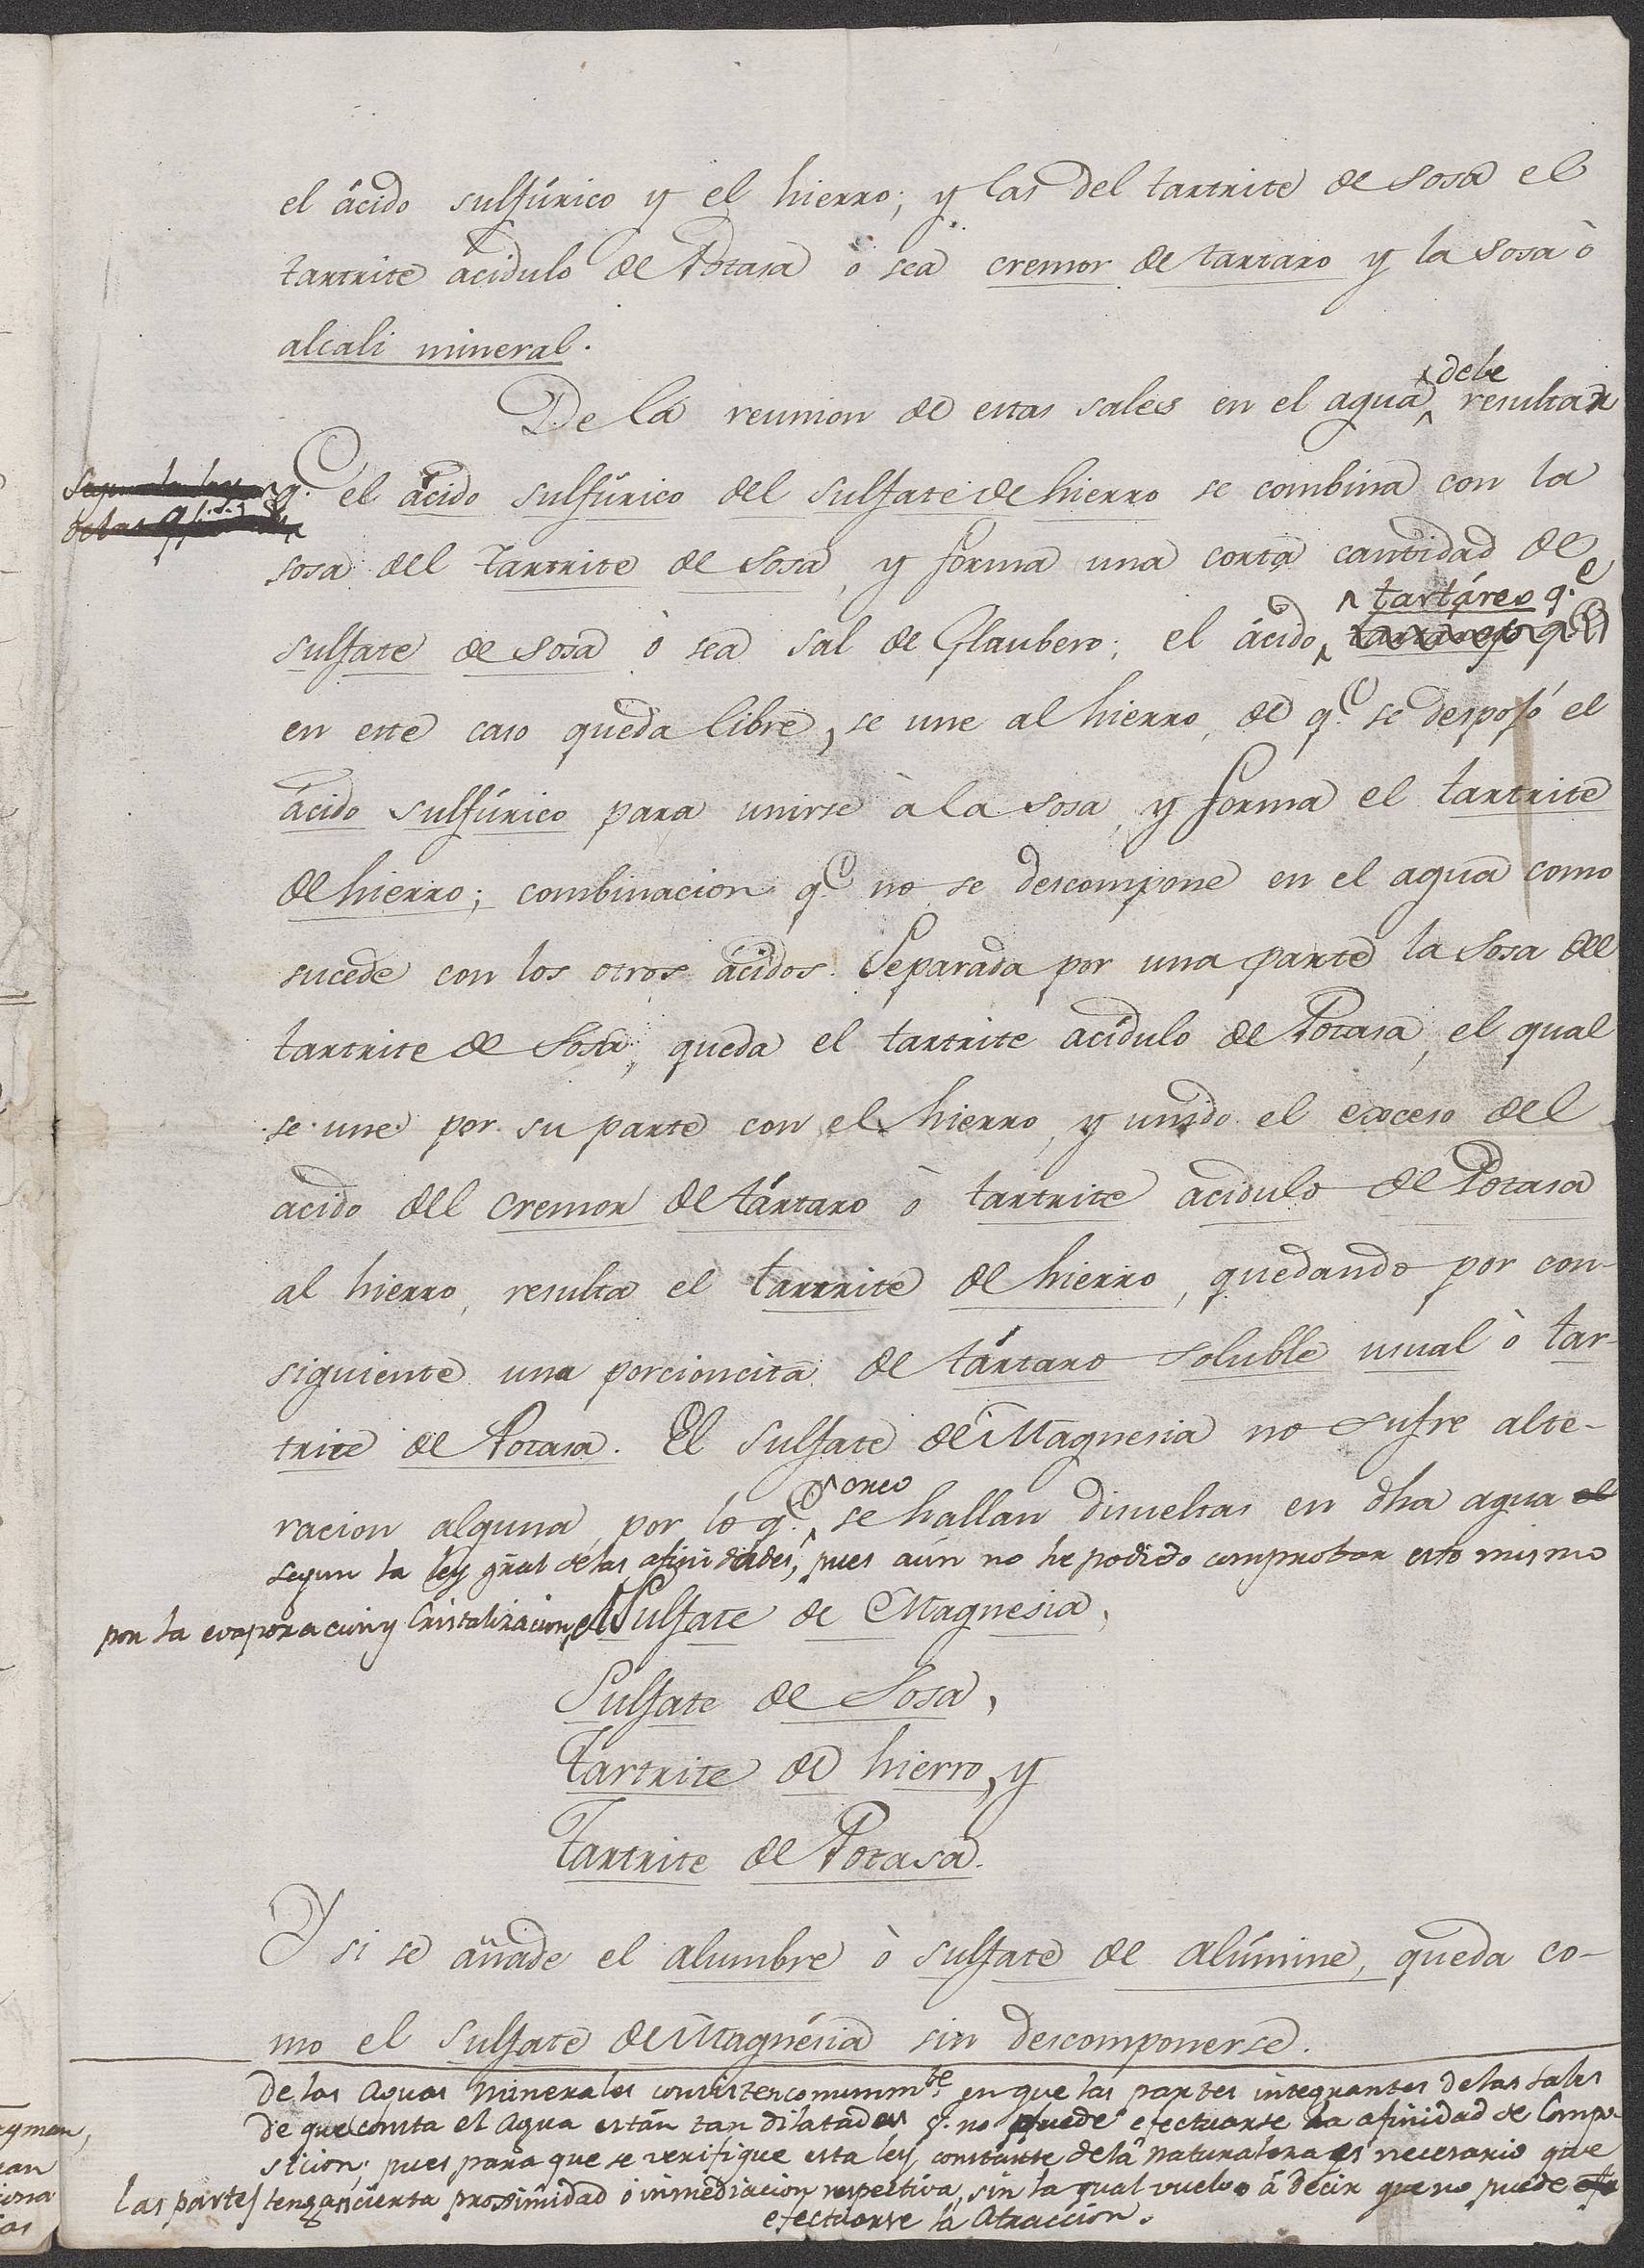 el ácido sulfúrico y el hierro; y las del tartrite de sosa el
tartrite ácidulo de Potasa ó sea cremor de tartaro y la sosa ò
alcali mineral.
debe
De la reunion de estas sales en el agua ^ resultar
q.e el ácido sulfúrico del sulfate de hierro se combina con la
sosa del tartrite de sosa, y forma una corta cantidad de
^ tartáreo q.e
sulfate de sosa ó sea sal de Glaubero; el ácido ^ tartareo q.e
en este caso queda libre, se une al hierro, de q.e se despojó el
ácido sulfúrico para unirse à la sosa, y forma el tartrite
de hierro; combinacion q.e no se descompone en el agua como
sucede con los otros ácidos. Separada por una parte la Sosa del
tartrite de Sosa, queda el tartrite acídulo de Potasa, el qual
se une por su parte con el hierro, y unido el exceso del
acido del cremor de tártaro ò tartrite acidulo de Potasa
al hierro, resulta el tartrite de hierro, quedando por con-
siguiente una porcioncita de tártaro soluble usual ò tar-
trite de Potasa. El sulfate de Magnesia no sufre alte-
^ creo
racion alguna, por lo q.e ^ se hallan disueltas en dha agua el
segun la ley gral de las afinidades, pues aún no he podido comprobar esto mismo
por la evaporacion y Cristalizacion, el Sulfate de Magnesia,
Sulfate de Sosa,
Tartrite de hierro, y
Tartrite de Potasa.
Y si se añade el alumbre ò sulfate de alúmine, queda co-
mo el sulfate de Magnésia sin descomponerse.
de las Aguas minerales consiste comunm.te en que las partes integrantes de las sales
de que consta el Agua están tan dilatadas q. no puede efectuarse la afinidad de Compo-
sicion; pues para que se verifique esta ley constante de la naturaleza es necesario que
las partes tengan cierta prossimidad ó inmediacion respectiva, sin la qual vuelvo á decir que no puede
efectuarse la Atraccion.